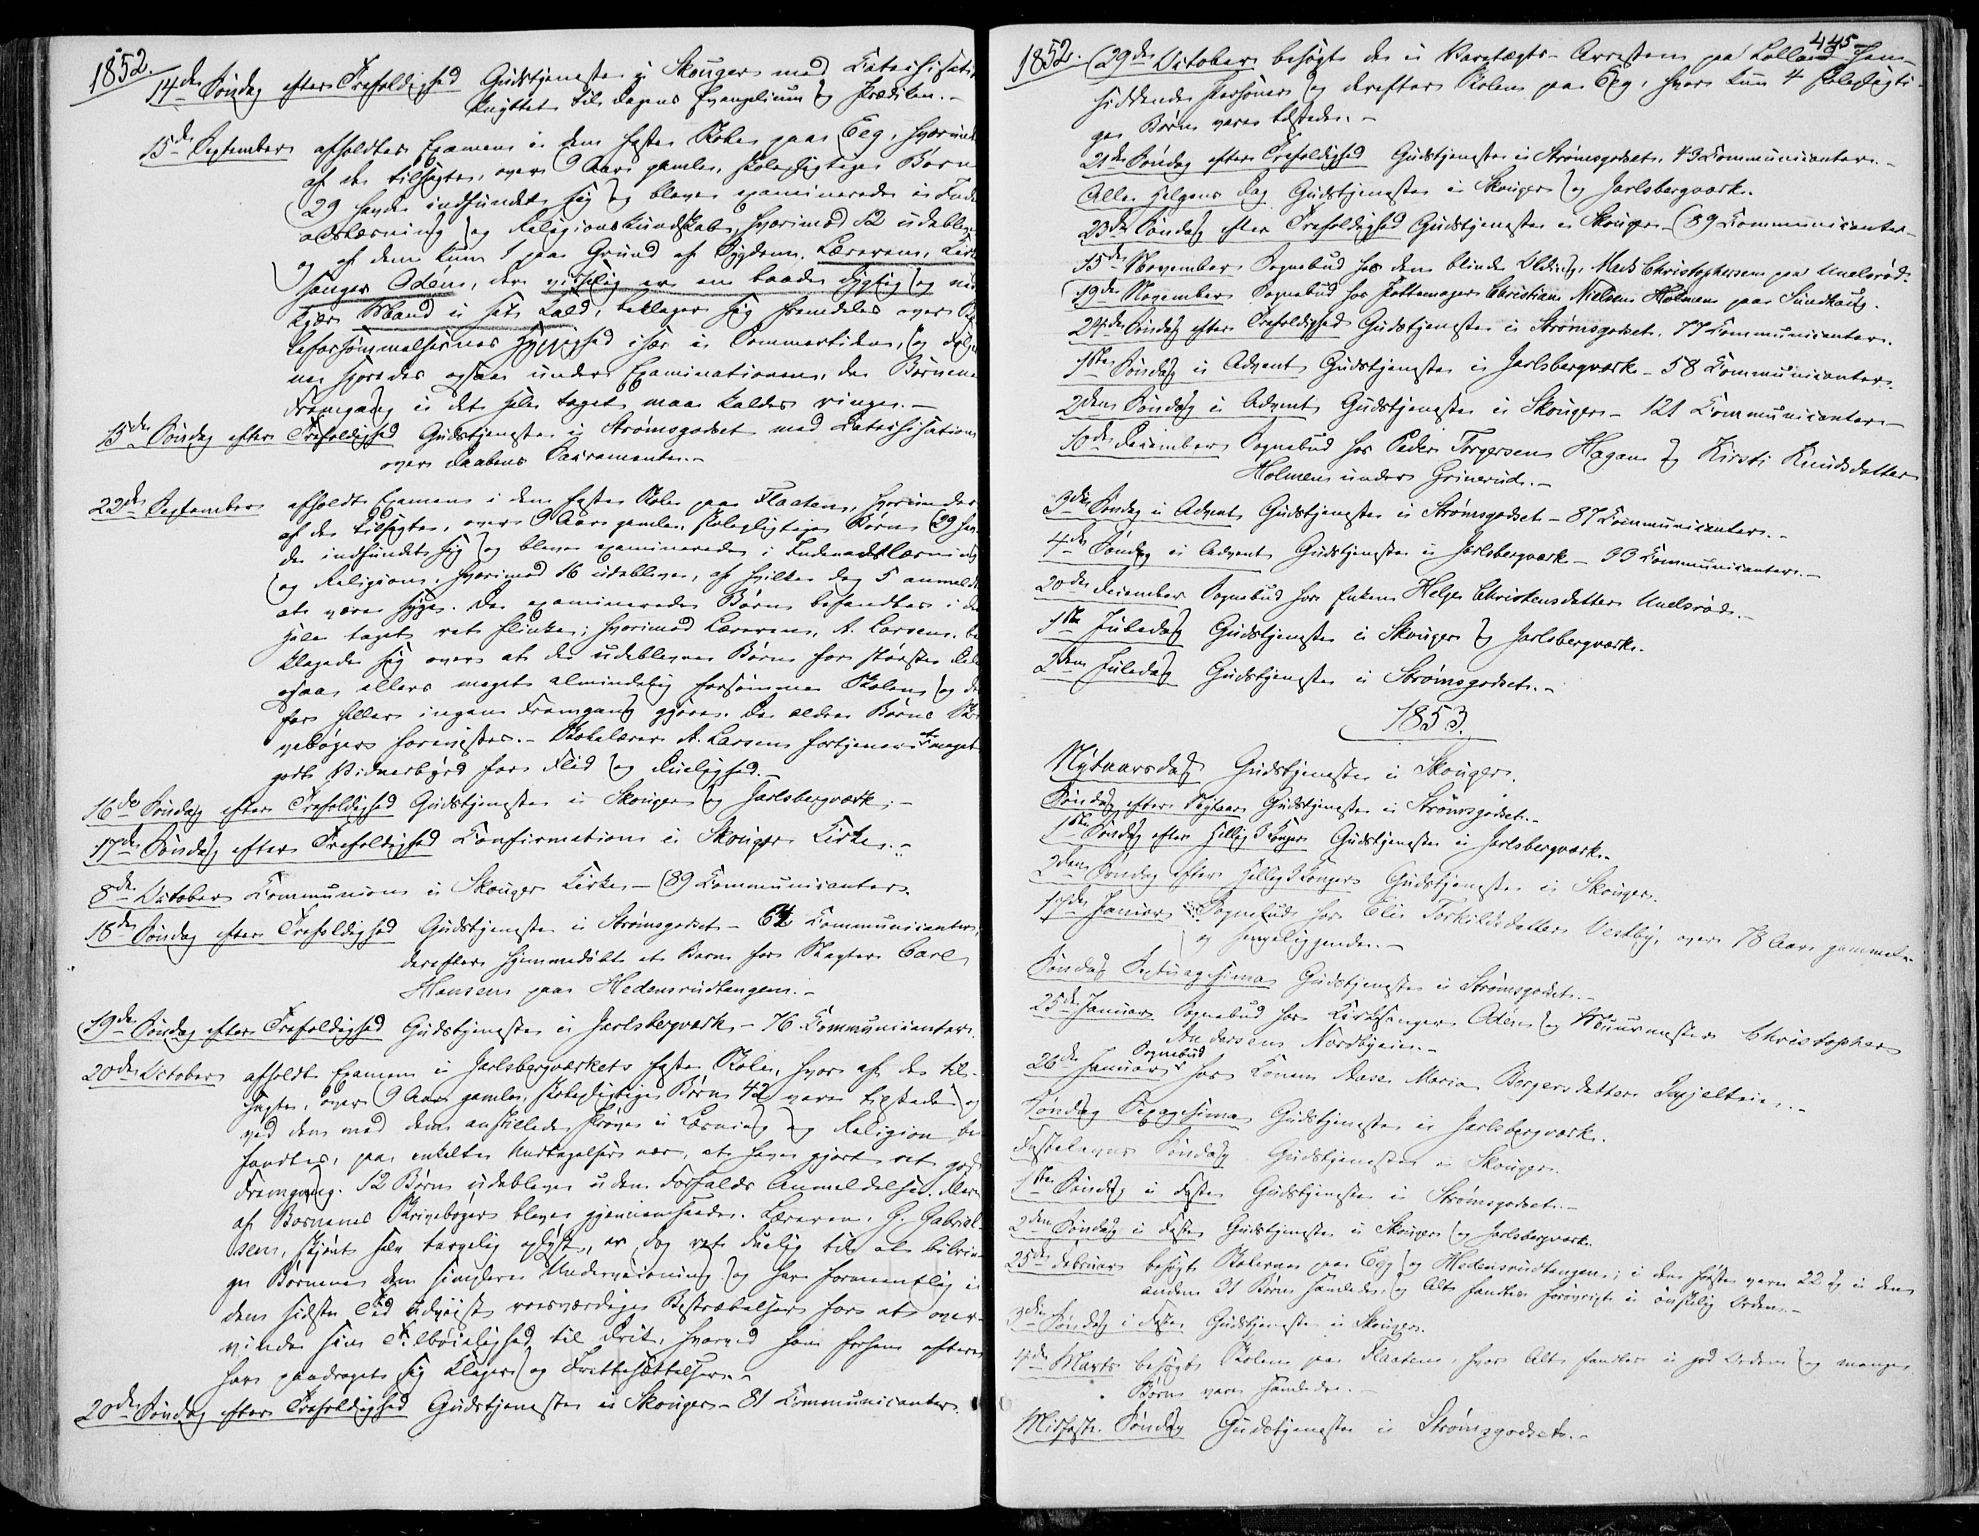 1852.
14de Søndag efter Trefoldighed Gudstjeneste i Skouger med Catechisation
knyttet til Dagens Evangelium og Prædiken.-
15de September afholdtes Examen i den faste Skole paa Eeg, hvorunder
af de tilsagte, over 9 Aar gamle, skolepligtige Børn
29 havde indfundet sig og bleve examinerede i Inden-
adslæsning og Religionskundskab, hvorimod 12 udebleve
og af dem kun 1 paa Grund af Sygdom. Læreren, Kirke-
sanger Odén, der virkelig er en baade dygtig og
Mand i sit Kald, beklager sig fremdeles over
leforsømmelsernes Hyppighed især i Sommertiden, og
ne sporedes ogsaa under Examinationen, da Børnenes
Fremgang i det hele taget maa kaldes ringe.-
15de Søndag efter Trefoldighed Gudstjeneste i Strømsgodset med Catechisation
over Daabens Sacramente.-
22de September afholdt Examen i den faste Skole paa Flaaten, hvorunder
af de tilsagte, over 9 Aar gamle, skolepligtige Børn 29 hav-
de indfundet sig og bleve examinerede i Indenadslæsning
og Religion, hvorimod 16 udebleve, af hvilke dog 5 anmeldt
at være syge. De examinerede Børn befandtes i det
hele taget ret flinke; hvorimod Læreren, A. Larsen, be-
klagede sig over at de udeblevne Børn for største Delen
ogsaa ellers meget almindelig forsømme Skolen og der-
for heller ingen Fremgang gjøre. De ældre Børns Skri-
vebøger forevistes.- Skolelærer A. Larsen fortjener et meget
godt Vidnesbyrd for Flid og Duelighed.-
16de Søndag efter Trefoldighed Gudstjeneste i Skouger og Jarlsbergværk.-
17de Søndag efter Trefoldighed Confirmation i Skouger Kirke.-
8de October Communion i Skouger Kirke - 89 Communicanter.
18de Søndag efter Trefoldighed Gudstjeneste i Strømsgodset - 64 Communicanter,
derefter hjemmedøbt et Barn for Slagter Carl
Hansen paa Hedensrudtangen.-
19de Søndag efter Trefoldighed Gudstjeneste i Jarlsbergværk - 76 Communicanter.
20de October afholdt Examen i Jarlsbergværkets faste Skole, hvor af de til-
sagte, over 9 Aar gamle, skolepligtige Børn 42 vare tilstede og
ved den med dem anstillede Prøve i Læsning og Religion be-
fandtes, paa enkelte Undtagelser nær, at have gjort ret god
Fremgang. 12 Børn udebleve uden Forfalds Anmeldelse. Flere
af Børnenes Skrivebøger bleve gjennemseede. Læreren, G. Gabriel-
sen, skjønt selv tarvelig oplyst, er dog ret duelig til at bibrin-
ge Børnene den simplere Underviisning og har formeentlig i
den sidste Tid udviist roesværdige Bestræbelser for at over-
vinde sin Tilbøielighed til Drik, hvorved han forhen oftere
har paadraget sig Klager og Irettesættelser.-
20de Søndag efter Trefoldighed Gudstjeneste i Skouger - 81 Communicanter.
445
1852. 29de October besøgt de i Varetægts-Arresten paa Lolland hen-
siddende Personer og derefter Skolen paa Eeg, hvor kun 4 skolepligti-
ge Børn vare tilstede.-
21de Søndag efter Trefoldighed Gudstjeneste i Strømsgodset, 43 Communicanter.-
Alle Helgens Dag Gudstjeneste i Skouger og Jarlsbergværk.
23de Søndag efter Trefoldighed Gudstjeneste i Skouger - 89 Communicanter.-
15de November Sognebud hos den blinde Olding, Mads Christophersen paa Unelsrød.
19de November Sognebud hos Pottemager Christian Nielsen Holmen paa Sundhaug.
24de Søndag efter Trefoldighed Gudstjeneste i Strømsgodset, 77 Communicanter.
1ste Søndag i Advent Gudstjeneste i Jarlsbergværk - 58 Communicanter.
2den Søndag i Advent Gudstjeneste i Skouger - 121 Communicanter.-
10de December Sognebud hos Peder Torgersen Hagan og Kirsti Knudsdatter
Holmen under Grinerud.-
3die Søndag i Advent Gudstjeneste i Strømsgodset - 87 Communicanter.-
4de Søndag i Advent Gudstjeneste i Jarlsbergværk - 33 Communicanter.-
20de December Sognebud hos Enken Helge Christensdatter Unelsrød.-
1ste Juledag Gudstjeneste i Skouger og Jarlsbergværk.
2den Juledag Gudstjeneste i Strømsgodset.-
1853.
Nytaarsdag Gudstjeneste i Skouger.
Søndag efter Nytaar Gudstjeneste i Strømsgodset.-
1ste Søndag efter Hellig 3 Konger Gudstjeneste i Jarlsbergværk.-
2den Søndag efter Hellig 3 Konger Gudstjeneste i Skouger.
17de Januar Sognebud hos Elie Torkildsdatter Vestby, over 78 Aar gammel
og sengeliggende.-
Søndag Septuagesima Gudstjeneste i Strømsgodset.-
25de Januar Sognebud hos Kirkesanger Odén og Muurmester Christopher
Andersen Nordbyeie.-
26de Januar Sognebud hos Konen Aase Maria Borgersdatter
Søndag Sexagesima Gudstjeneste i Jarlsbergværk.
Fastelavns Søndag Gudstjeneste i Skouger.
1ste Søndag i Faste Gudstjeneste i Strømsgodset.-
2den Søndag i Faste Gudstjeneste i Skouger og Jarlsbergværk.
25de Februar besøgt Skolerne paa Eeg og Hedensrudtangen; i den første vare 22 og i den
anden 31 Børn samlede og Alt fandtes forøvrigt i ønskelig Orden.-
3die Søndag i Faste Gudstjeneste i Skouger.
4de Marts besøgt Skolen paa Flaaten, hvor Alt fandtes i god Orden og mange
Børn vare samlede.-
Midfaste Søndag Gudstjeneste i Strømsgodset.-